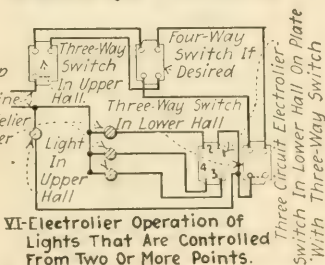 Three-Way
Switch
In Upper
Hall.
Four-Way
Switch If
Desired
Three-Way Switch
In Lower Hall
Light
In
Upper
Hall
1
2
4
3
Three Circuit Electrolier-
Switch In Lower Hall On Plate
With Three-Way Switch
VI-Electrolier Operation Of
Lights That Are Controlled
From Two Or More Points.